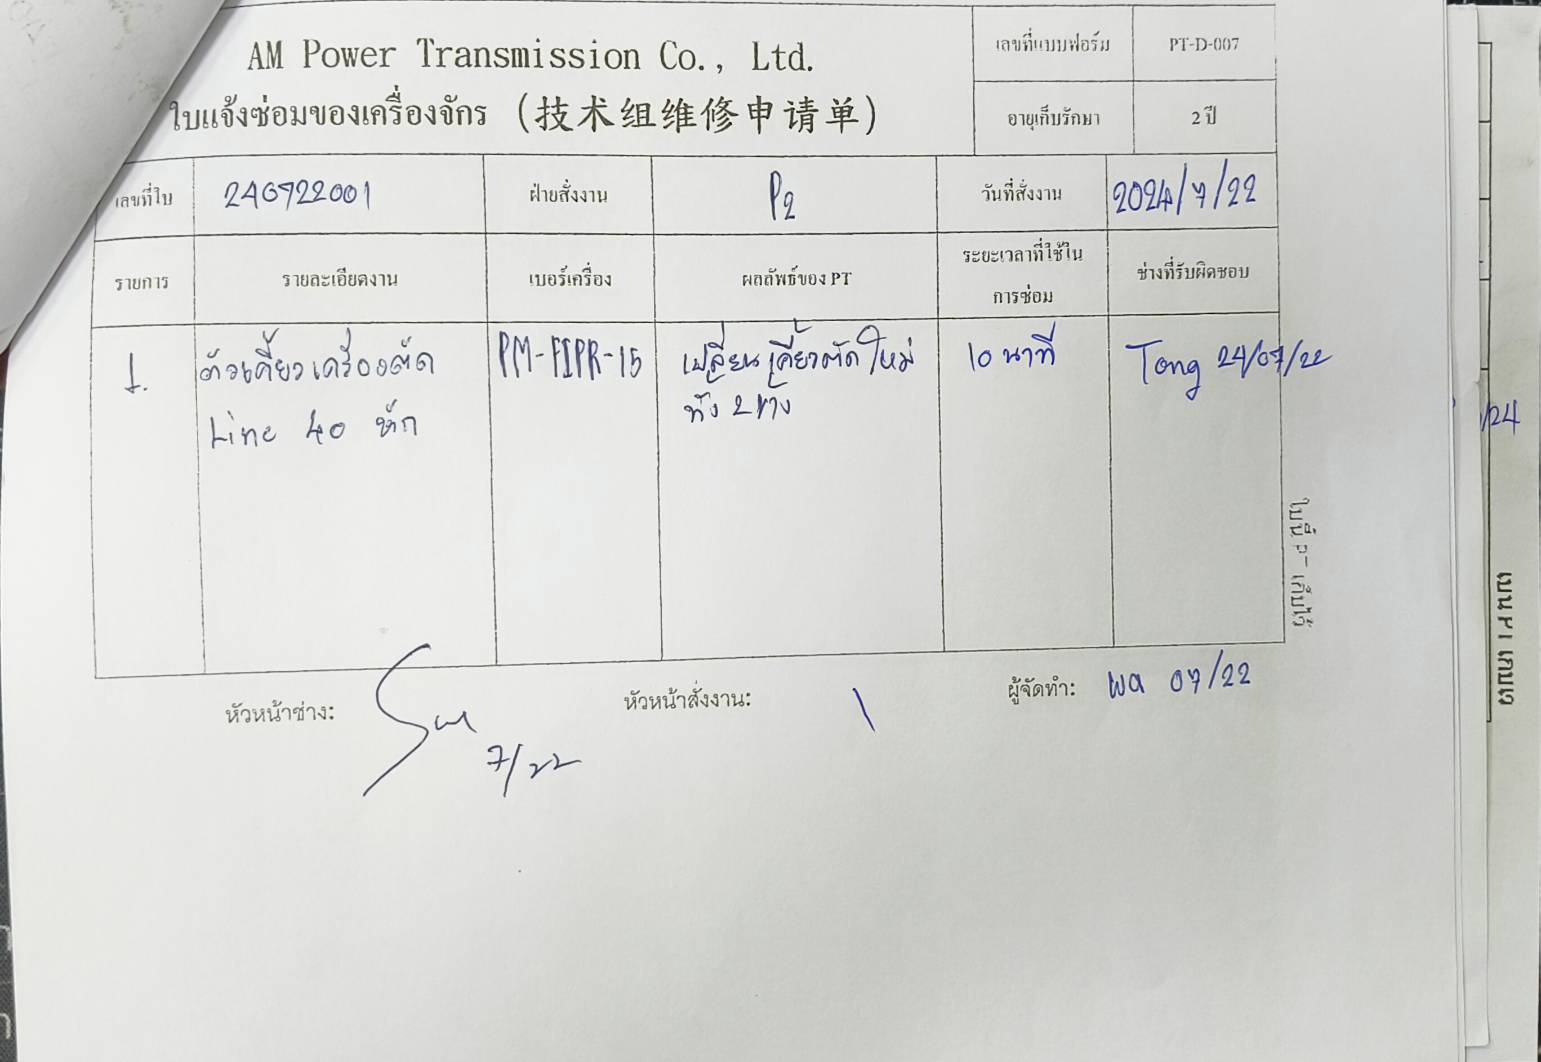 AM Power Transmission Co., Ltd.
ใบแจ้งซ่อมของเครื่องจักร (技术组维修申请单)
เลขที่แบบฟอร์ม PT-D-007
อายุเก็บรักษา 2 ปี
เลขที่ใบ 240722001 ฝ่ายสั่งงาน P2 วันที่สั่งงาน 2024/7/22
รายการ รายละเอียดงาน เบอร์เครื่อง ผลลัพธ์ของ PT ระยะเวลาที่ใช้ใน
การซ่อม
ช่างที่รับผิดชอบ
1. ตัวเคี้ยวเครื่องตัด
Line 40 หัก
PM-FIPR-15
เปลี่ยนเคี้ยวตัดใหม่
ทั้ง 2 ข้าง
10 นาที
Tong 24/07/22
หัวหน้าช่าง:
7/22
หัวหน้าสั่งงาน:
ผู้จัดทำ: Wa 07/22
ใบนี้ PT เก็บไว้
/24